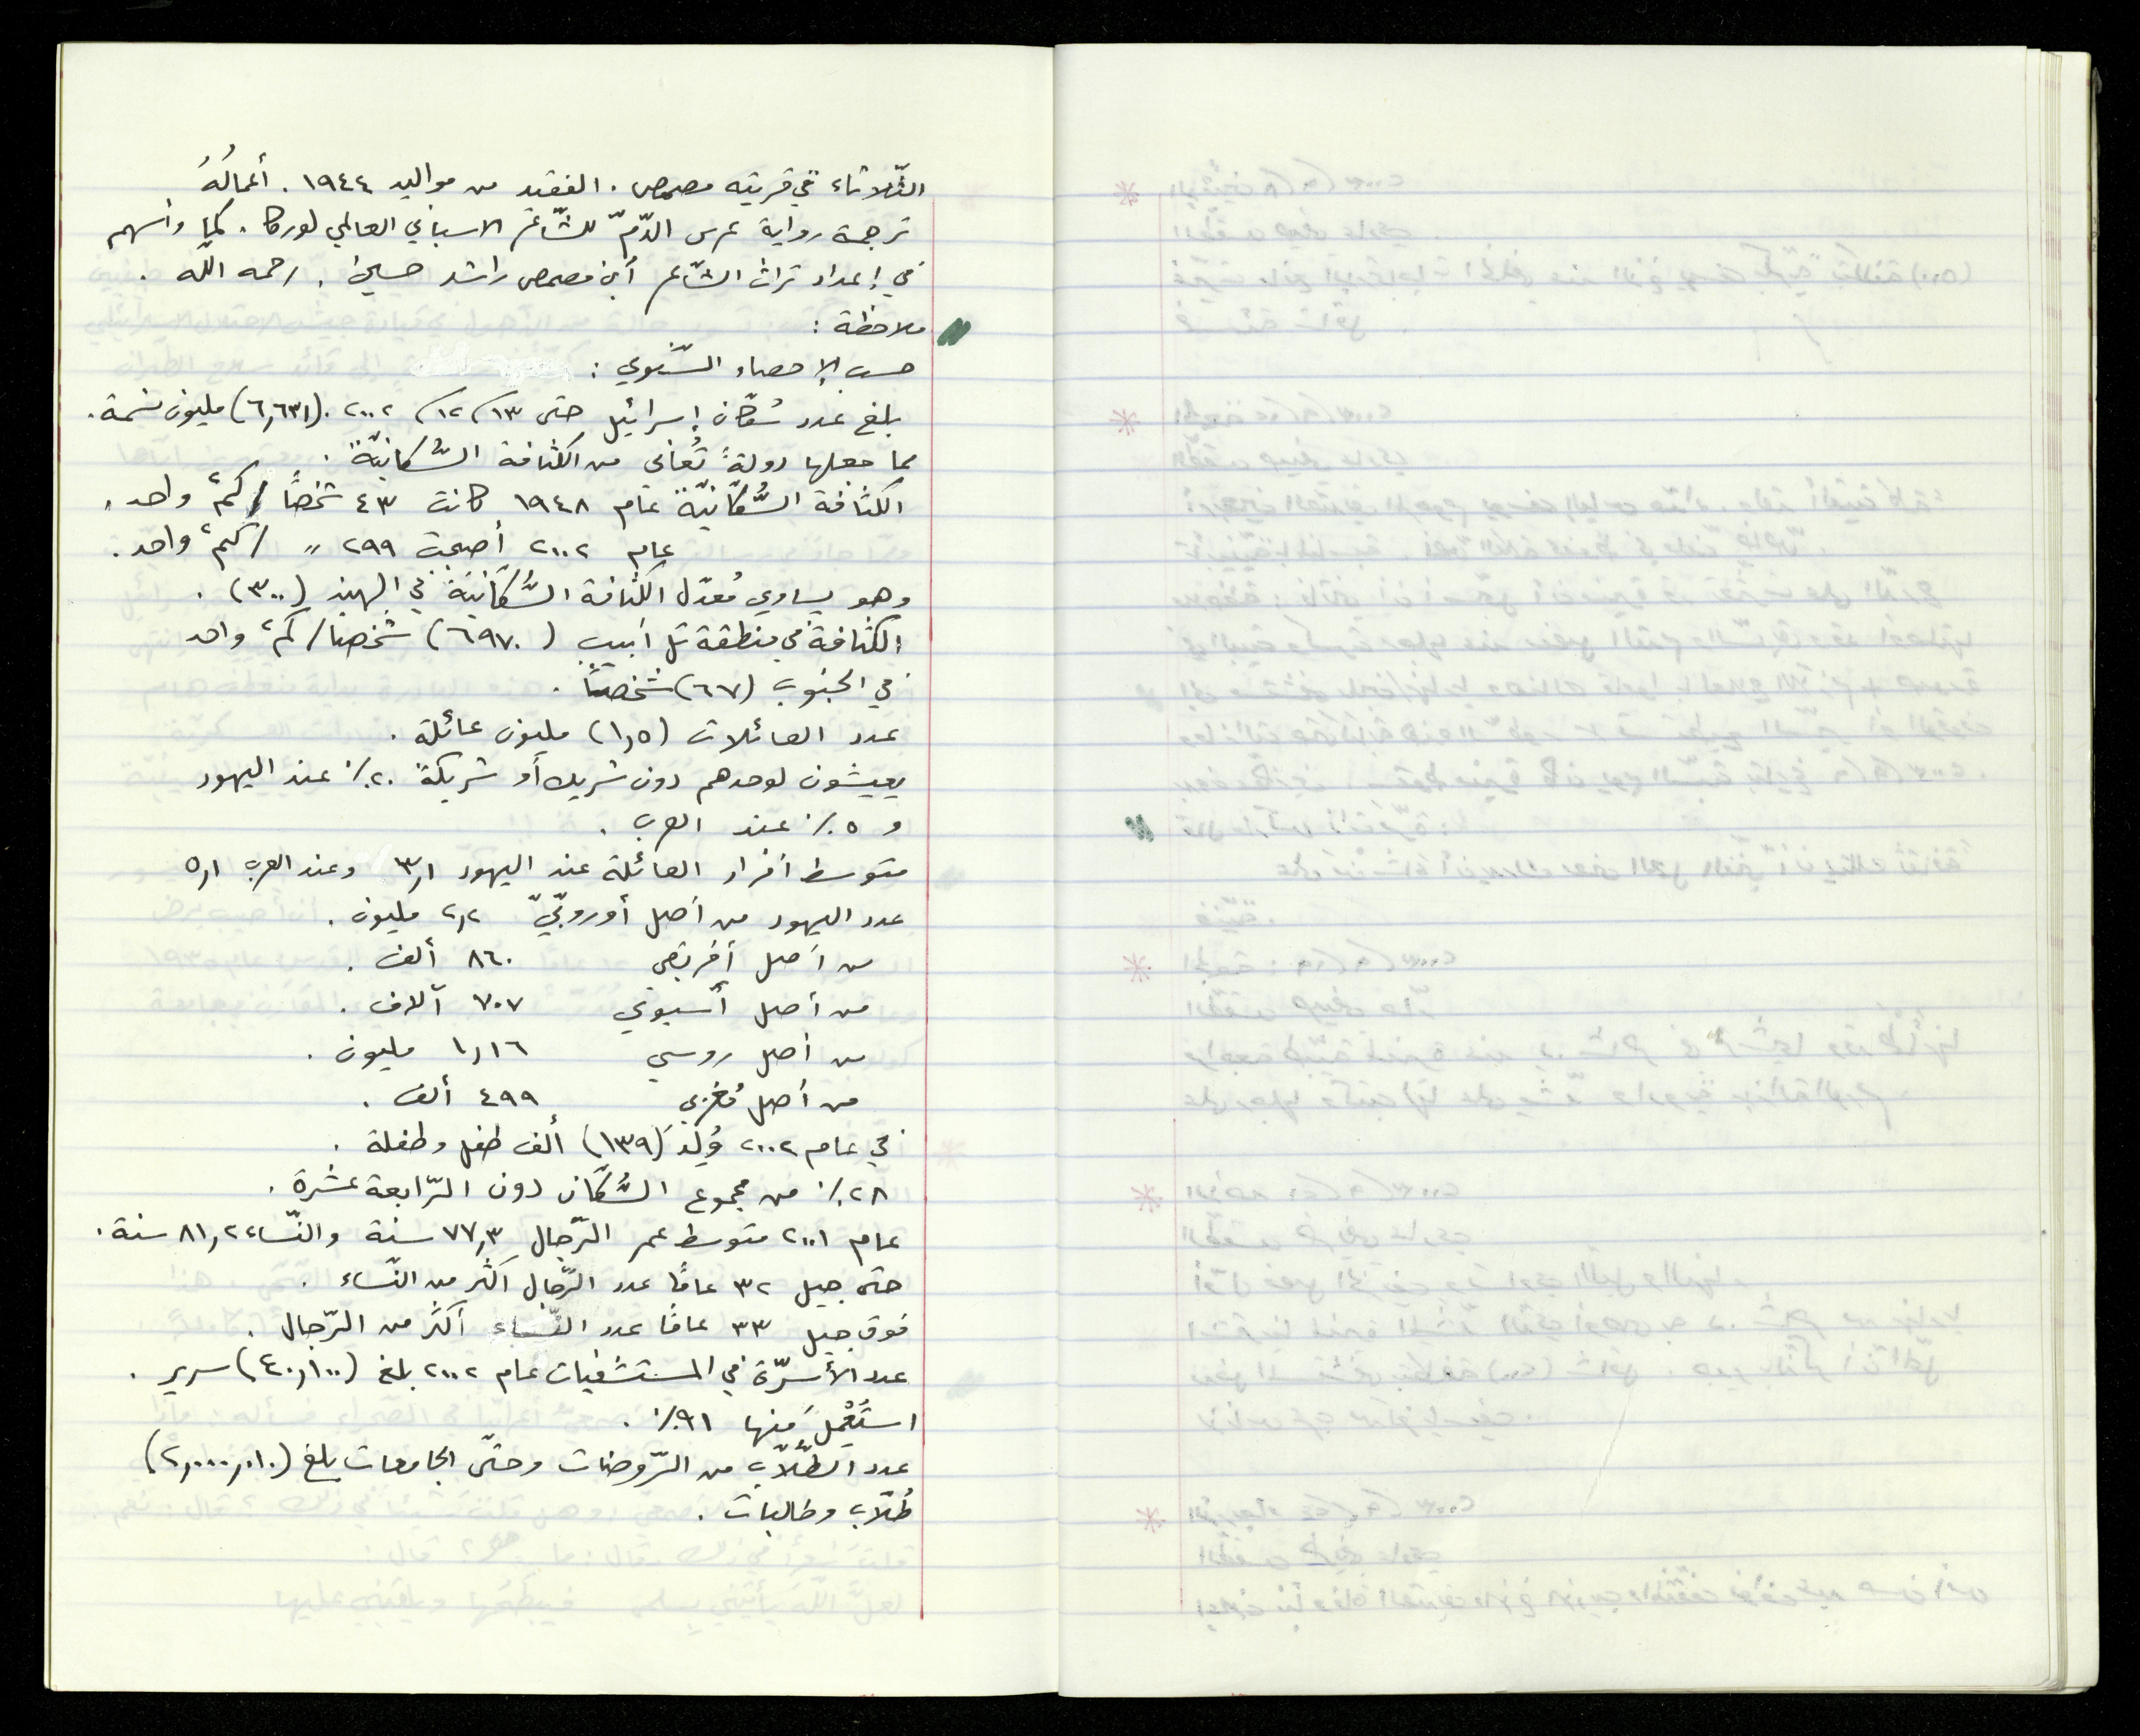 الثّلاثاء في قريته مصمص. الفقيد من مواليد ١٩٤٤. أعمالُهُ
ترجمة رواية عرس الدّمّ للشّاعر الاسباني العالمي لوركا. كما وأسهم
في إعداد تراث الشّاعر أبن مصمص راشد حسين. رحمه الله.
ملاحظة:
حسب الإحصاء السّنوي:
بلغ عدد سُكّان إسرائيل حتى ١٣/١٢/٢٠٠٢. (٦,٦٣١) مليون نسمة.
مما جعلها دولةً تُعاني من الكثافة السُّكانيّة.
الكثافة السُّكّانيّة عام ١٩٤٨ كانت ٤٣ شخصًا / كم٢ واحد،
عام ٢٠٠٢ أصبحت ٢٩٩ " / كم٢ واحد.
وهو يساوي مُعدّل الكثافة السُّكّانيّة في الهند (٣٠٠).
الكثافة في منطقة تل أبيب (٦٩٧٠) شخصًا/كم٢ واحد
في الجنوب (٦٧) شخصًا.
عدد العائلات (١,٥) مليون عائلة.
يعيشون لوحدهم دون شريك أو شريكة ٢٠٪ عند اليهود
و ٥٪ عند العرب.
متوسط أفراد العائلة عند اليهود ٣,١ وعند العرب ٥,١
عدد اليهود من أصل أوروبّيّ ٢,٢ مليون.
من أصل أفريقي ٨٦٠ ألف.
من أصل أسيوي ٧٠٧ آلاف.
من أصل روسي ١,١٦ مليون.
من أصل مغربي ٤٩٩ ألف.
في عام ٢٠٠٢ وُلِدَ (١٣٩) ألف طفل وطفلة.
٢٨٪ من مجموع السُّكّان دون الرّابعة عشرة.
عام ٢٠٠١ متوسط عمر الرّجال ٧٧,٣ سنة والنّساء ٨١,٢ سنة.
حتى جيل ٣٢ عامًا عدد الرّجال أكثر من النّساء.
فوق جيل ٣٣ عامًا عدد النّساء أكثر من الرّجال.
عدد الأسرّة في المستشفيات عام ٢٠٠٢ بلغ (٤٠,١٠٠) سرير.
استُعْمِلَ منها ٩١٪.
عدد الطُّلّاب من الرّوضات وحتّى الجامعات بلغ (٢,٠٠٠,٠١٠)
طُلّاب وطالبات.